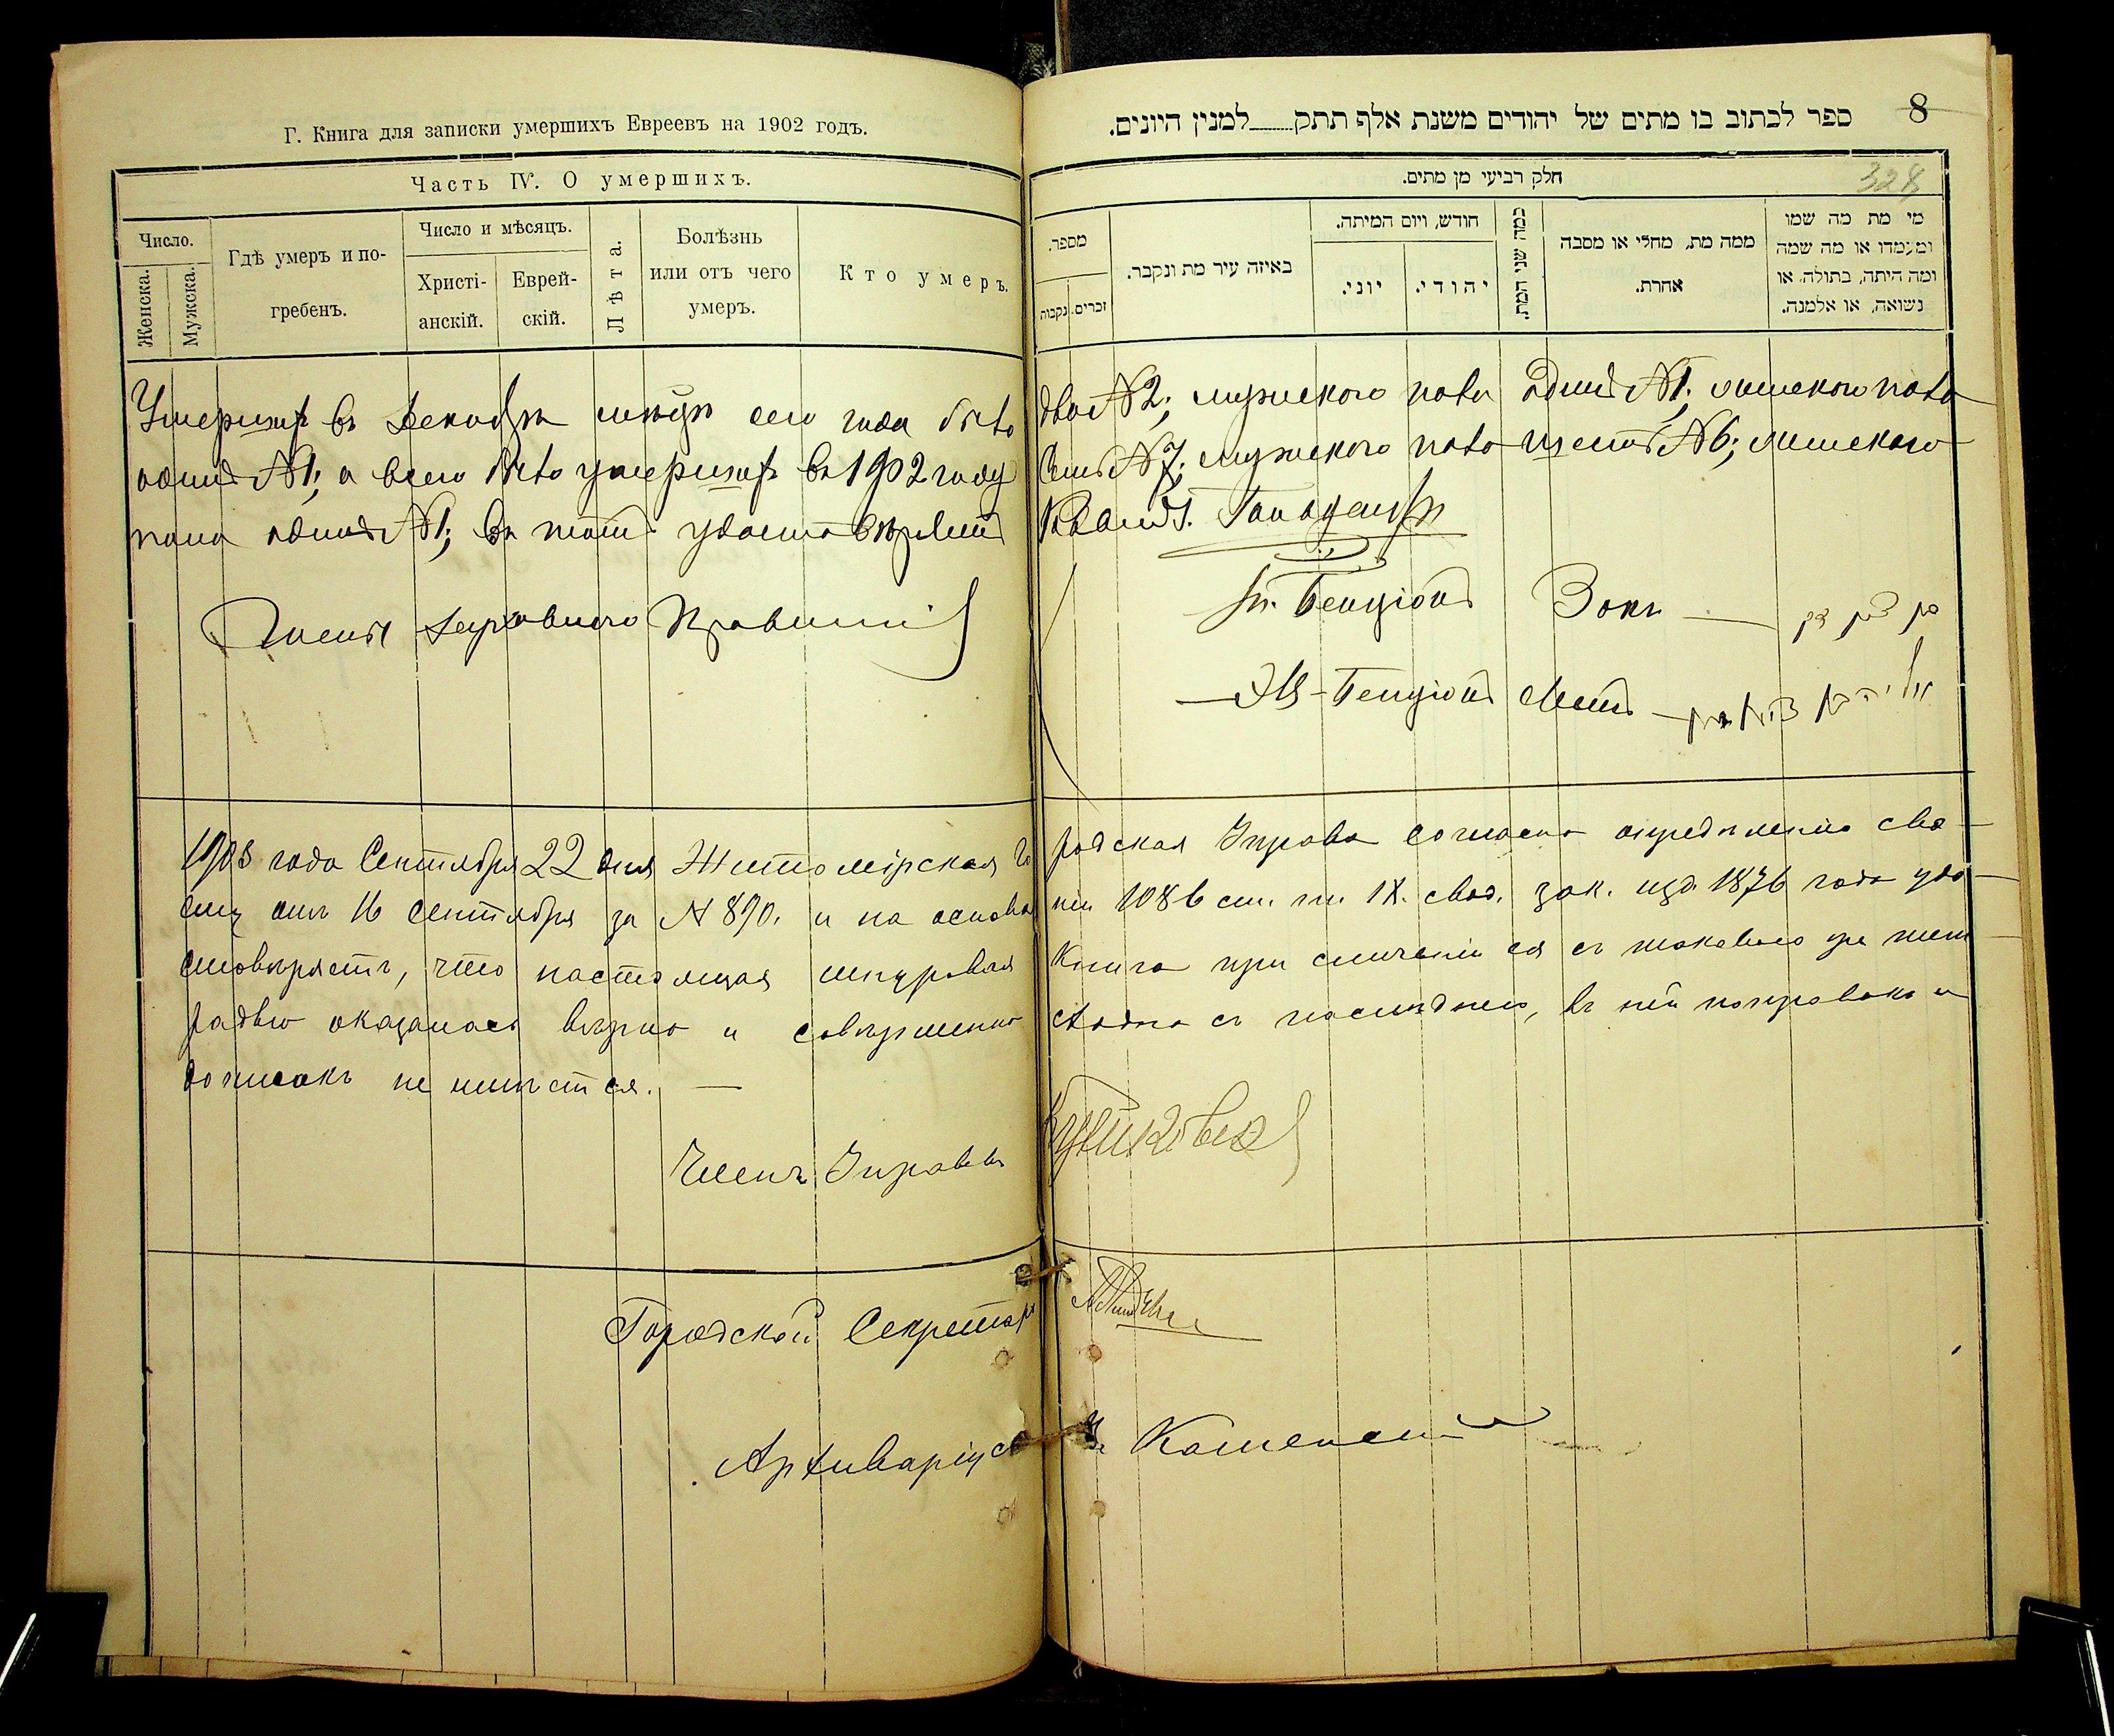 Г. Книга для записки умершихъ Евреевъ на 1902 годъ.
Часть IV. О умершихъ.
Число.
Женска.
Мужска.
Гдѣ умеръ и по-
гребенъ.
Число и мѣсяцъ.
Христі-
анскій.
Еврей-
скій.
Лѣта.
Болѣзнь
или отъ чего
умеръ.
Кто умеръ.
8
ספר לכתוב בו מתים של יהודים משנת אלף תתק למנין היונים.
328
חלק רביעי מן מתים.
מספר.
זכרים.
נקבות
באיזה עיר מת ונקבר.
חודש, ויום המיתה.
יוני.
יהודי.
כמה שני המת.
ממה מת, מחלי או מסבה
אחרת.
מי מת מה שמו
ומעמדו או מה שמה
ומה היתה, בתולה או
נשואה, או אלמנה.
Умершихъ въ Декабрѣ мѣсяцѣ сего года было два №2; мужеского пола одинъ №1; женского пола
одинъ №1; а всего было умершихъ въ 1902 году семь №7; мужеского пола шесть №6; женского
пола одинъ №1; въ томъ удостовѣряемъ
Члены Духовного Правленія
Бенціонъ Зокъ
Бенціонъ
1903 года Сентября 22 дня Житомірская Городская Управа согласно опредѣленію сво-
ему отъ 16 Сентября за № 890. и на основаніи 1086 ст. т. IX. свод. зак. изд. 1876 года удо-
стовѣряетъ, что настоящая шнуровая Книга при сличеніи ея съ таковою же тет
радью оказалась вѣрно и совершенно сходна съ послѣднею, въ ней поправокъ и
дописокъ не имѣется. —
Членъ Управы
Городской Секретарь
Архиваріусъ Каменскій